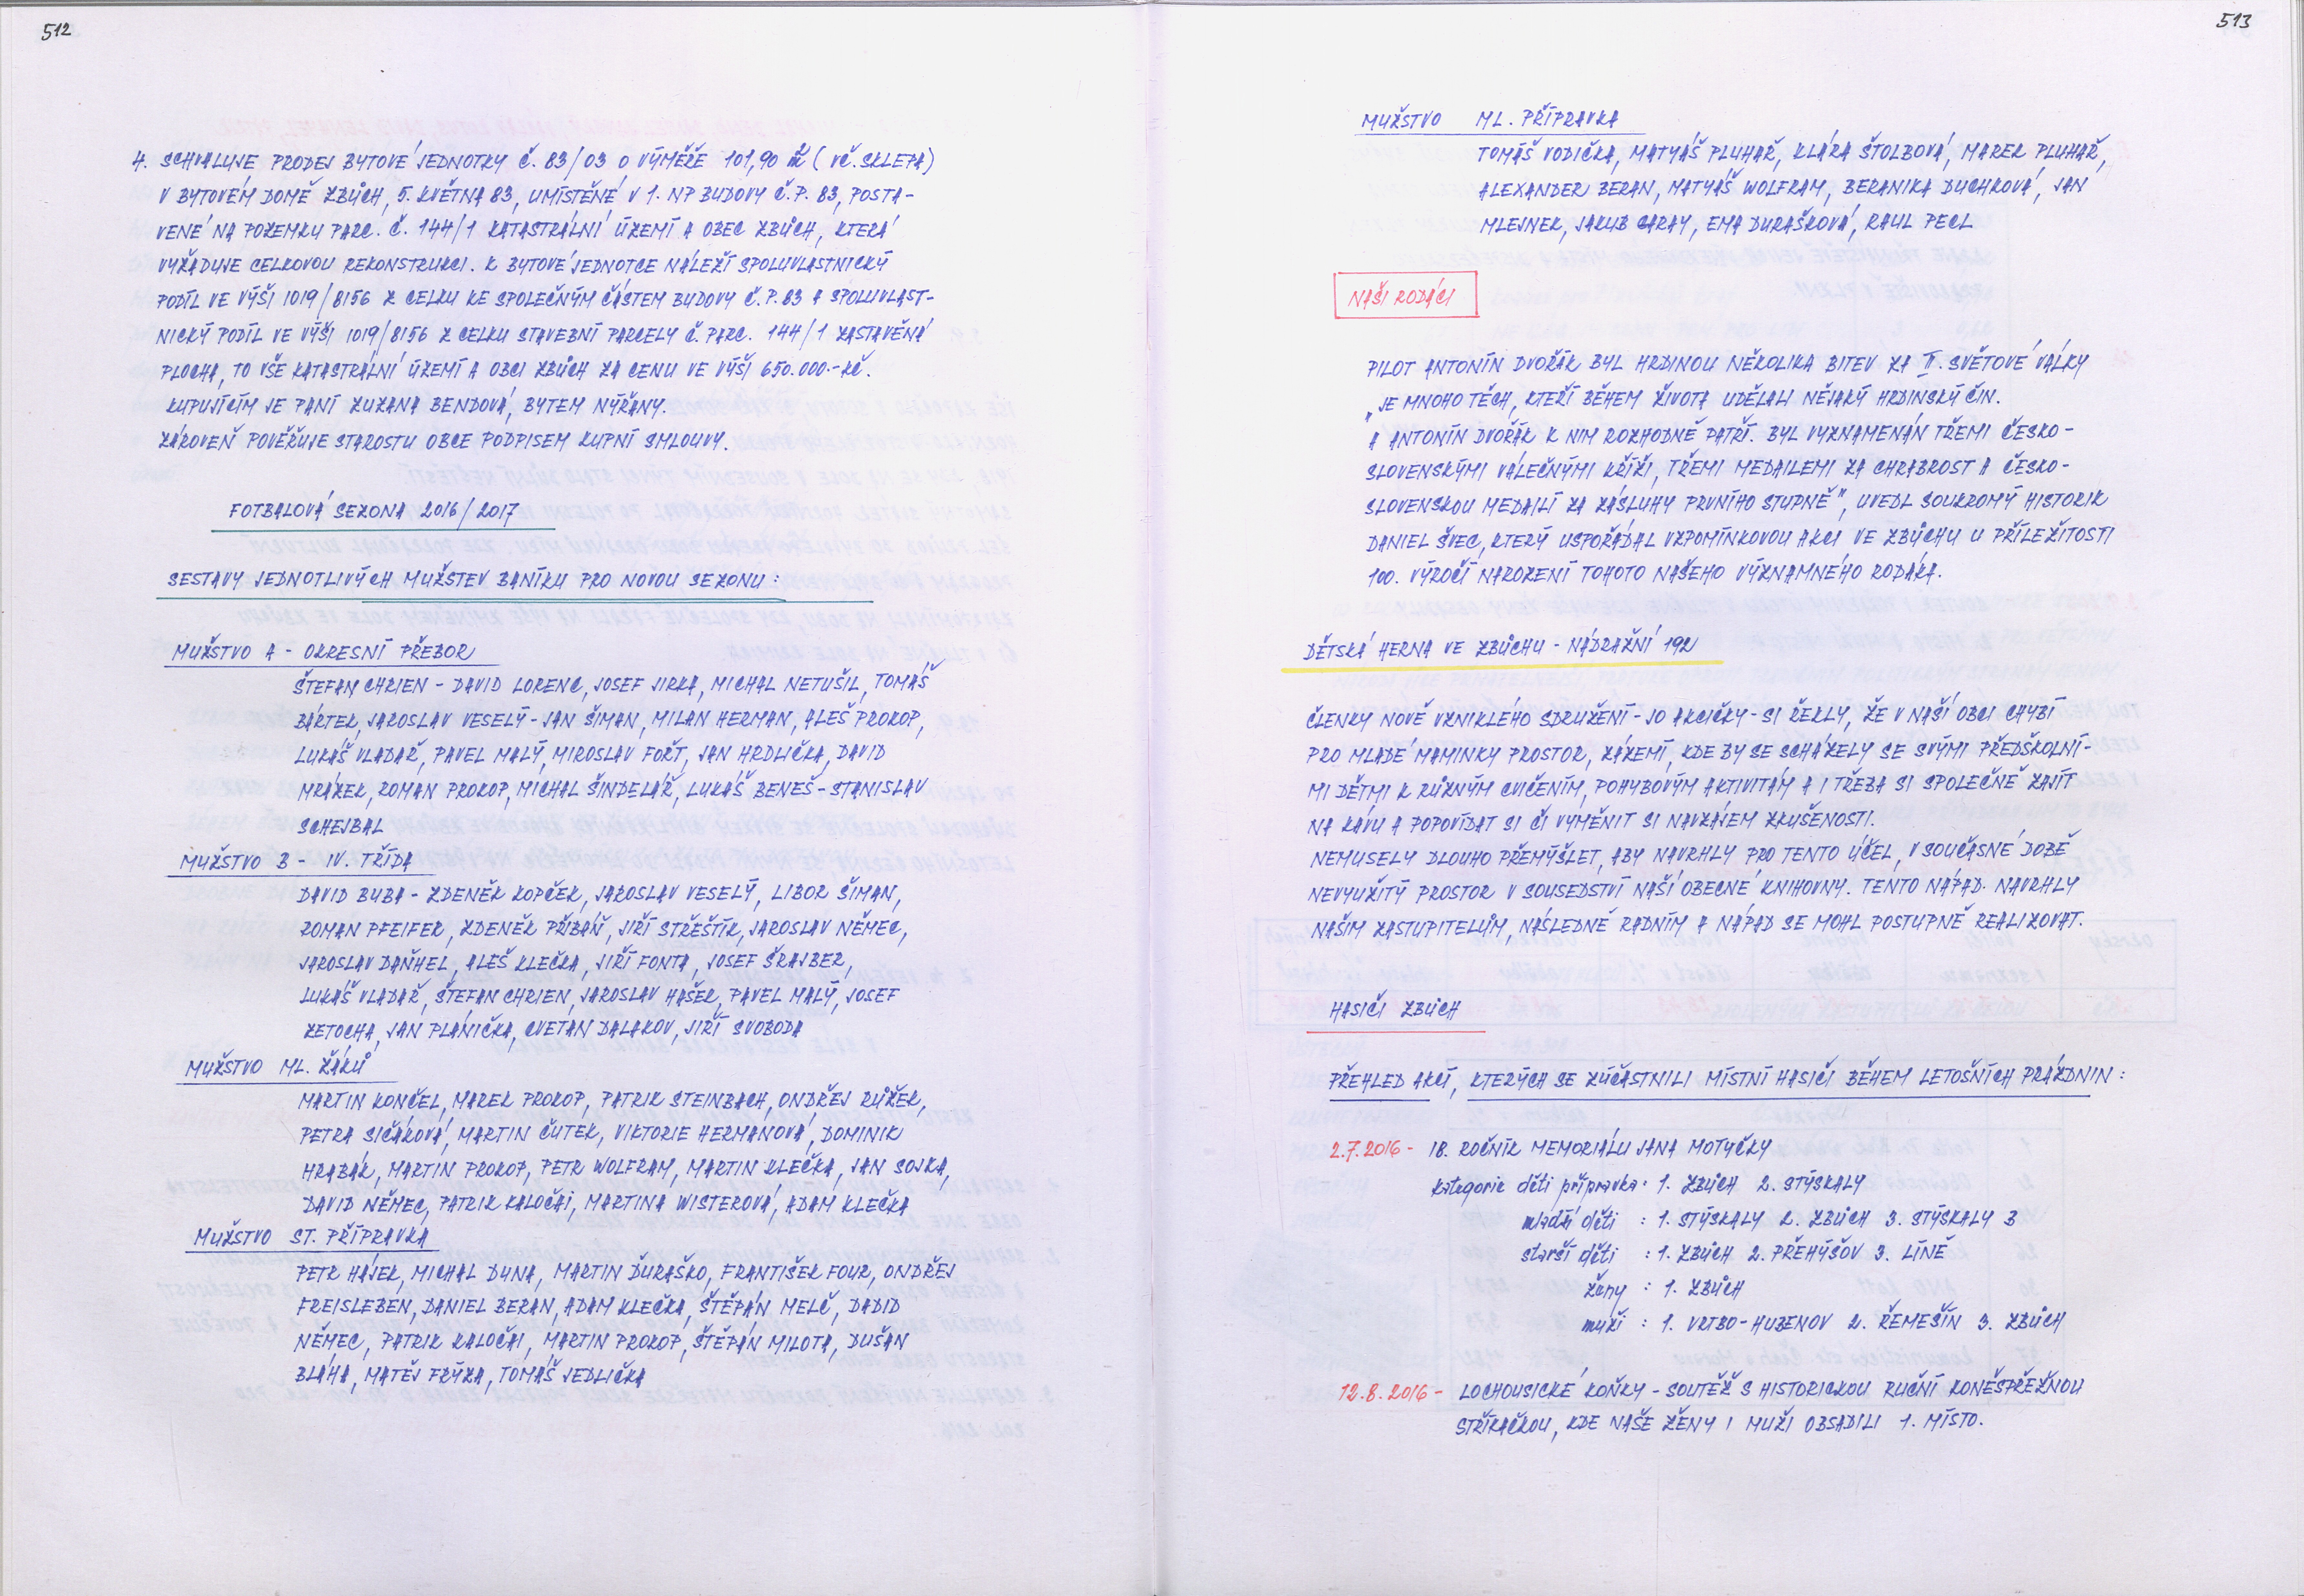 512
4. SCHVALUJE PRODEJ BYTOVÉ JEDNOTKY Č. 83/03 O VÝMĚŘE 101,90 m² (VČ. SKLEPA)
V BYTOVÉM DOMĚ ZBŮCH, 5. KVĚTNA 83, UMÍSTĚNÉ V 1. NP BUDOVY Č.P. 83, POSTA-
VENÉ NA POZEMKU PARC. Č. 144/1 KATASTRÁLNÍ ÚZEMÍ A OBEC ZBŮCH, KTERÁ
VYŽADUJE CELKOVOU REKONSTRUKCI. K BYTOVÉ JEDNOTCE NÁLEŽÍ SPOLUVLASTNICKÝ
PODÍL VE VÝŠI 1019/8156 Z CELKU KE SPOLEČNÝM ČÁSTEM BUDOVY Č.P. 83 A SPOLUVLAST-
NICKÝ PODÍL VE VÝŠI 1019/8156 Z CELKU STAVEBNÍ PARCELY Č. PARC. 144/1 ZASTAVĚNÁ
PLOCHA, TO VŠE KATASTRÁLNÍ ÚZEMÍ A OBCI ZBŮCH ZA CENU VE VÝŠI 650.000.-KČ.
KUPUJÍCÍM JE PANÍ ZUZANA BENDOVÁ, BYTEM NÝŘANY.
ZÁROVEŇ POVĚŘUJE STAROSTU OBCE PODPISEM KUPNÍ SMLOUVY.
FOTBALOVÁ SEZONA 2016/2017
SESTAVY JEDNOTLIVÝCH MUŽSTEV BANÍKU PRO NOVOU SEZONU:
MUŽSTVO A - OKRESNÍ PŘEBOR
ŠTEFAN CHRIEN - DAVID LORENC, JOSEF JIRKA, MICHAL NETUŠIL, TOMÁŠ
BÁRTEK, JAROSLAV VESELÝ - JAN ŠIMAN, MILAN HERMAN, ALEŠ PROKOP,
LUKÁŠ VLADAŘ, PAVEL MALÝ, MIROSLAV FOŘT, JAN HRDLIČKA, DAVID
MRÁZEK, ROMAN PROKOP, MICHAL ŠINDELÁŘ, LUKÁŠ BENEŠ - STANISLAV
SCHEJBAL
MUŽSTVO B - IV. TŘÍDA
DAVID BUBA - ZDENĚK KOPČEK, JAROSLAV VESELÝ, LIBOR ŠIMAN,
ROMAN PFEIFER, ZDENĚK PŘIBÁŇ, JIŘÍ STŘEŠTÍK, JAROSLAV NĚMEC,
JAROSLAV DAŇHEL, ALEŠ KLEČKA, JIŘÍ FONTA, JOSEF ŠRAJBER,
LUKÁŠ VLADAŘ, ŠTEFAN CHRIEN, JAROSLAV HAŠEK, PAVEL MALÝ, JOSEF
ZETOCHA, JAN PLÁNIČKA, CVETAN DALAKOV, JIŘÍ SVOBODA
MUŽSTVO ML. ŽÁKŮ
MARTIN KONČEL, MAREK PROKOP, PATRIK STEINBACH, ONDŘEJ RŮŽEK,
PETRA SIČÁKOVÁ, MARTIN ČUTEK, VIKTORIE HERMANOVÁ, DOMINIK
HRABÁK, MARTIN PROKOP, PETR WOLFRAM, MARTIN KLEČKA, JAN SOJKA,
DAVID NĚMEC, PATRIK KALOČAI, MARTINA WISTEROVÁ, ADAM KLEČKA
MUŽSTVO ST. PŘÍPRAVKA
PETR HÁJEK, MICHAL DUNA, MARTIN ĎURAŠKO, FRANTIŠEK FOUR, ONDŘEJ
FREISLEBEN, DANIEL BERAN, ADAM KLEČKA, ŠTĚPÁN MELČ, DADID
NĚMEC, PATRIK KALOČAI, MARTIN PROKOP, ŠTĚPÁN MILOTA, DUŠAN
BLÁHA, MATĚJ FRÝZA, TOMÁŠ JEDLIČKA
513
MUŽSTVO ML. PŘÍPRAVKA
TOMÁŠ VODIČKA, MATYÁŠ PLUHAŘ, KLÁRA ŠTOLBOVÁ, MAREK PLUHAŘ,
ALEXANDER BERAN, MATYÁŠ WOLFRAM, BERANIKA DUCHKOVÁ, JAN
MLEJNEK, JAKUB GARAY, EMA DURAŠKOVÁ, RAUL PECL
NAŠI RODÁCI
PILOT ANTONÍN DVOŘÁK BYL HRDINOU NĚKOLIKA BITEV ZA II. SVĚTOVÉ VÁLKY
„JE MNOHO TĚCH, KTEŘÍ BĚHEM ŽIVOTA UDĚLALI NĚJAKÝ HRDINSKÝ ČIN.
A ANTONÍN DVOŘÁK K NIM ROZHODNĚ PATŘÍ. BYL VYZNAMENÁN TŘEMI ČESKO-
SLOVENSKÝMI VÁLEČNÝMI KŘÍŽI, TŘEMI MEDAILEMI ZA CHRABROST A ČESKO-
SLOVENSKOU MEDAILÍ ZA ZÁSLUHY PRVNÍHO STUPNĚ", UVEDL SOUKROMÝ HISTORIK
DANIEL ŠVEC, KTERÝ USPOŘÁDAL VZPOMÍNKOVOU AKCI VE ZBŮCHU U PŘÍLEŽITOSTI
100. VÝROČÍ NAROZENÍ TOHOTO NAŠEHO VÝZNAMNÉHO RODÁKA.
DĚTSKÁ HERNA VE ZBŮCHU - NÁDRAŽNÍ 192
ČLENKY NOVĚ VZNIKLÉHO SDRUŽENÍ - JO AKCIČKY - SI ŘEKLY, ŽE V NAŠÍ OBCI CHYBÍ
PRO MLADÉ MAMINKY PROSTOR, ZÁZEMÍ, KDE BY SE SCHÁZELY SE SVÝMI PŘEDŠKOLNÍ-
MI DĚTMI K RŮZNÝM CVIČENÍM, POHYBOVÝM AKTIVITÁM A I TŘEBA SI SPOLEČNĚ ZAJÍT
NA KÁVU A POPOVÍDAT SI ČI VYMĚNIT SI NAVZÁJEM ZKUŠENOSTI.
NEMUSELY DLOUHO PŘEMÝŠLET, ABY NAVRHLY PRO TENTO ÚČEL, V SOUČASNÉ DOBĚ
NEVYUŽITÝ PROSTOR V SOUSEDSTVÍ NAŠÍ OBECNÉ KNIHOVNY. TENTO NÁPAD NAVRHLY
NAŠIM ZASTUPITELŮM, NÁSLEDNĚ RADNÍM A NÁPAD SE MOHL POSTUPNĚ REALIZOVAT.
HASIČI ZBŮCH
PŘEHLED AKCÍ, KTERÝCH SE ZÚČASTNILI MÍSTNÍ HASIČI BĚHEM LETOŠNÍCH PRÁZDNIN:
2.7.2016 - 18. ROČNÍK MEMORIÁLU JANA MOTYČKY
kategorie děti přípravka: 1. ZBŮCH 2. STÝSKALY
mladší děti : 1. STÝSKALY 2. ZBŮCH 3. STÝSKALY B
starší děti : 1. ZBŮCH 2. PŘEHÝŠOV 3. LÍNĚ
ženy : 1. ZBŮCH
muži : 1. VRTBO-HUBENOV 2. ŘEMEŠÍN 3. ZBŮCH
12.8.2016 - LOCHOUSICKÉ KOŇKY - SOUTĚŽ S HISTORICKOU RUČNÍ KONĚSPŘEŽNOU
STŘÍKAČKOU, KDE NAŠE ŽENY I MUŽI OBSADILI 1. MÍSTO.